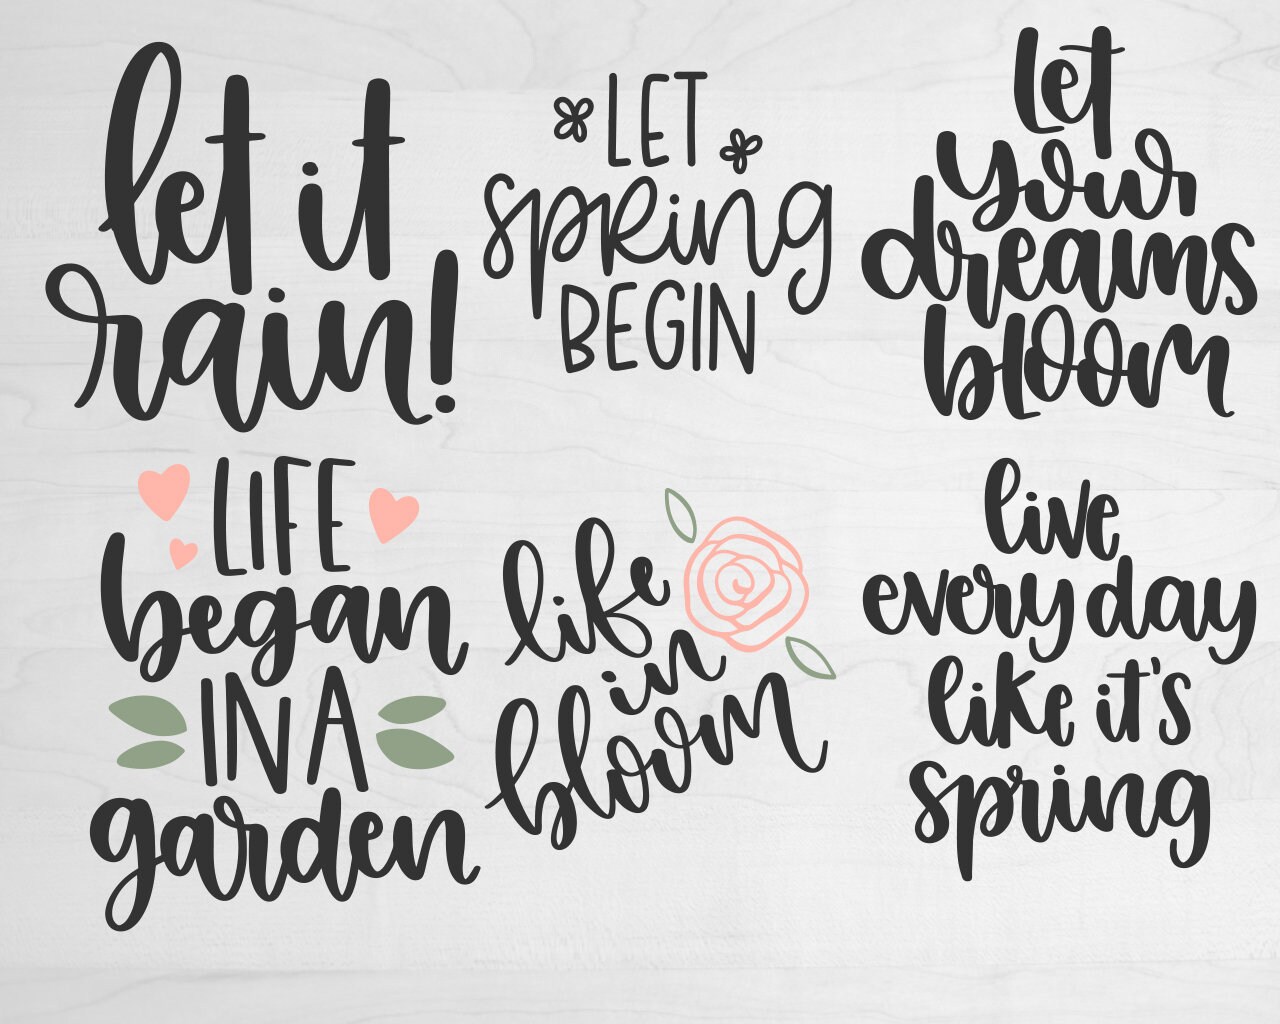 let it
rain!
LET
spring
BEGIN
let
your
dreams
bloom
LIFE
began
IN A
garden
life
in
bloom
live
every day
like it's
spring